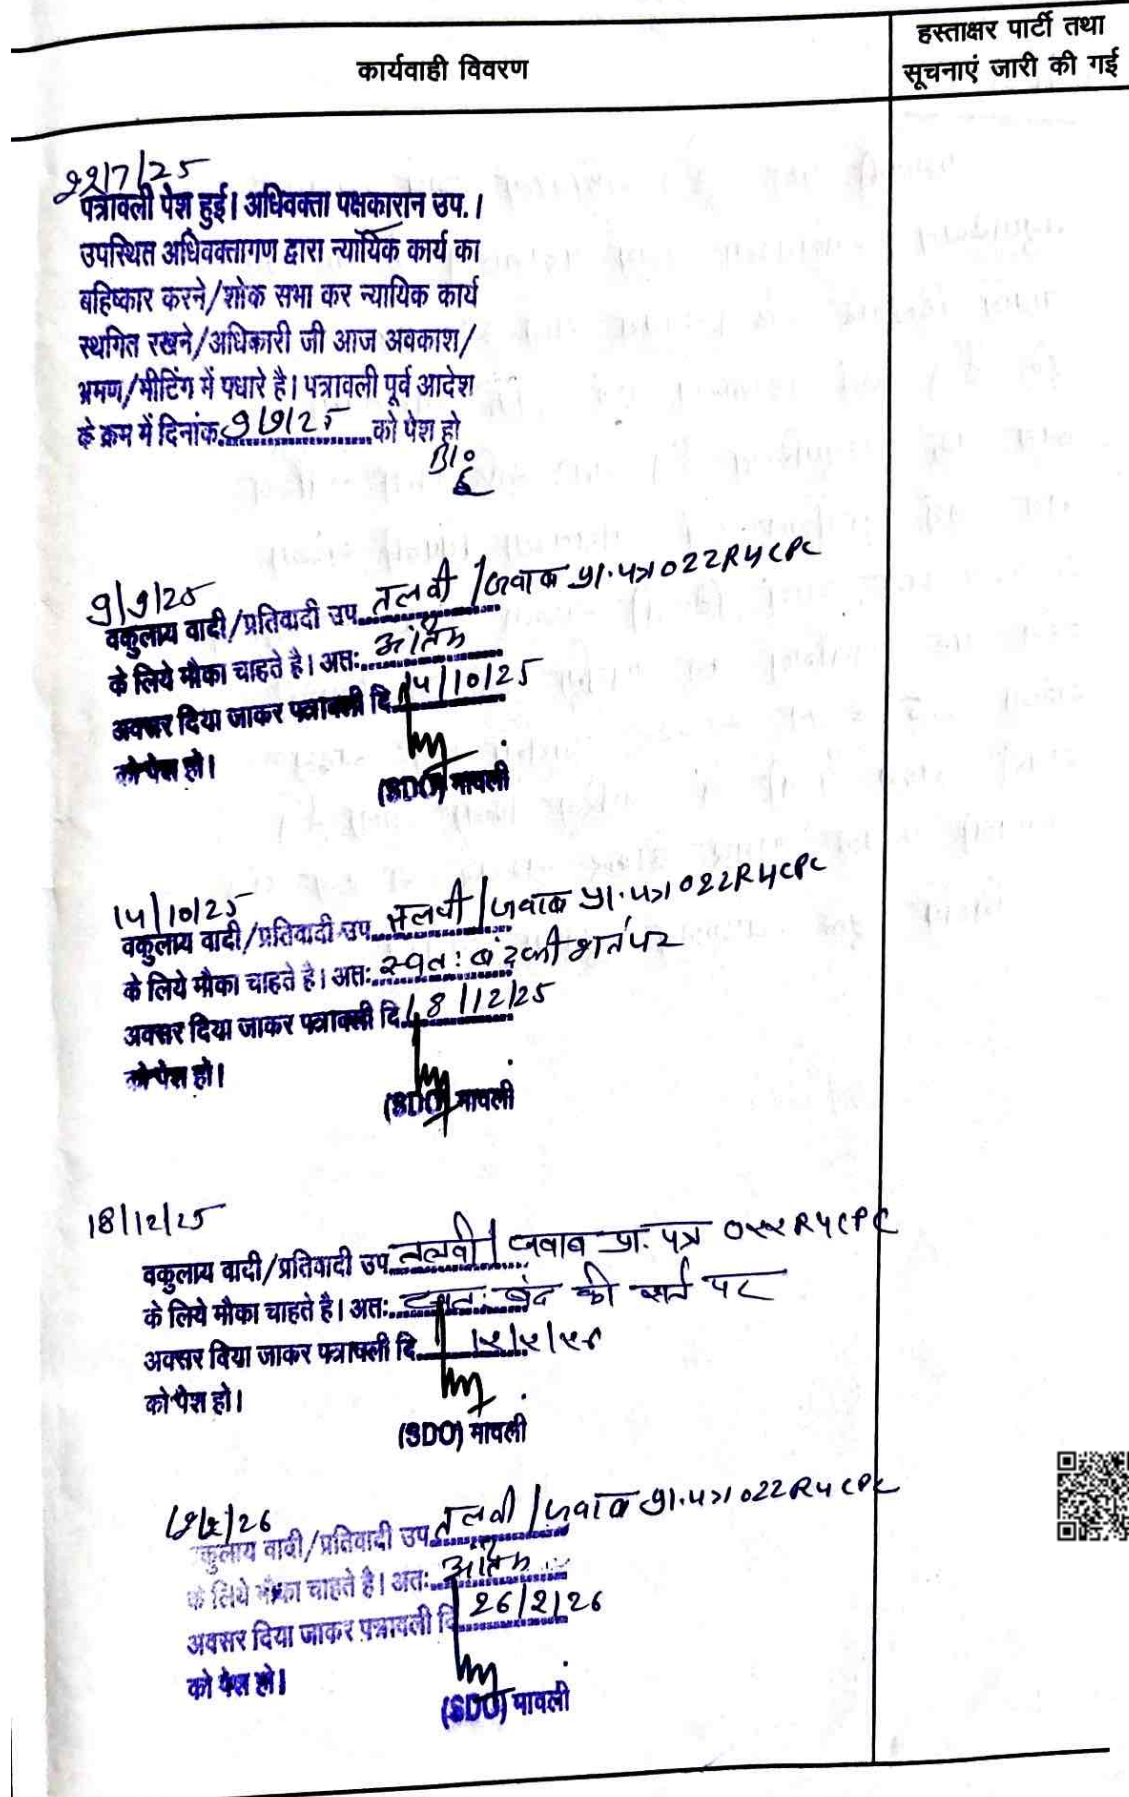 कार्यवाही विवरण
हस्ताक्षर पार्टी तथा
सूचनाएं जारी की गई
22/7/25
पत्रावली पेश हुई। अधिवक्ता पक्षकारान उप.।
उपस्थित अधिवक्तागण द्वारा न्यायिक कार्य का
बहिष्कार करने/शोक सभा कर न्यायिक कार्य
स्थगित रखने/अधिकारी जी आज अवकाश/
भ्रमण/मीटिंग में पधारे है। पत्रावली पूर्व आदेश
के क्रम में दिनांक 9/9/25 को पेश हो
9/9/25
वकुलाय वादी/प्रतिवादी उप तलवी/जवाब प्रा.पत्र O22R4CPC
के लिये मौका चाहते है। अतः अंतिम
अवसर दिया जाकर पत्रावली दि. 14/10/25
को पेश हो।
(SDO) मावली
14/10/25
वकुलाय वादी/प्रतिवादी उप तलवी/जवाब प्रा.पत्र O22R4CPC
के लिये मौका चाहते है। अतः स्वतः बंद की शर्त पर
अवसर दिया जाकर पत्रावली दि. 18/12/25
को पेश हो।
(SDO) मावली
18/12/25
वकुलाय वादी/प्रतिवादी उप तलवी/जवाब प्रा. पत्र O२२R4CPC
के लिये मौका चाहते है। अतः स्वतः बंद की शर्त पर
अवसर दिया जाकर पत्रावली दि.
को पेश हो।
(SDO) मावली
वकुलाय वादी/प्रतिवादी उप तलवी/जवाब प्रा.पत्र O22R4CPC
के लिये मौका चाहते है। अतः अंतिम
अवसर दिया जाकर पत्रावली दि 26/2/26
को पेश हो।
(SDO) मावली